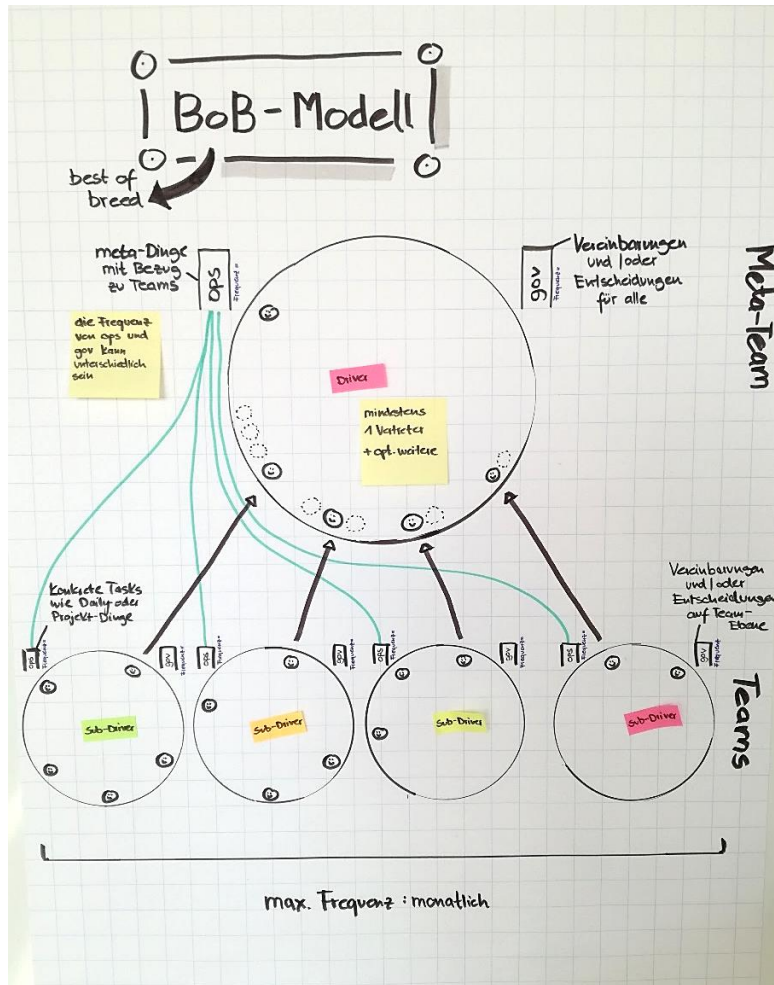 BoB-Modell
best of
breed
meta-Dinge
mit Bezug
zu Teams
ops
Frequenz=
gov
Frequenz=
Vereinbarungen
und/oder
Entscheidungen
für alle
Meta-Team
die Frequenz
von ops und
gov kann
unterschiedlich
sein
Driver
mindestens
1 Vertreter
+ opt. weitere
Konkrete Tasks
wie Daily oder
Projekt-Dinge
Vereinbarungen
und/oder
Entscheidungen
auf Team-
Ebene
ops
Frequenz=
gov
Frequenz=
ops
Frequenz=
gov
Frequenz=
ops
Frequenz=
gov
Frequenz=
ops
Frequenz=
gov
Frequenz=
Sub-Driver
Sub-Driver
Sub-Driver
Sub-Driver
Teams
max. Frequenz: monatlich